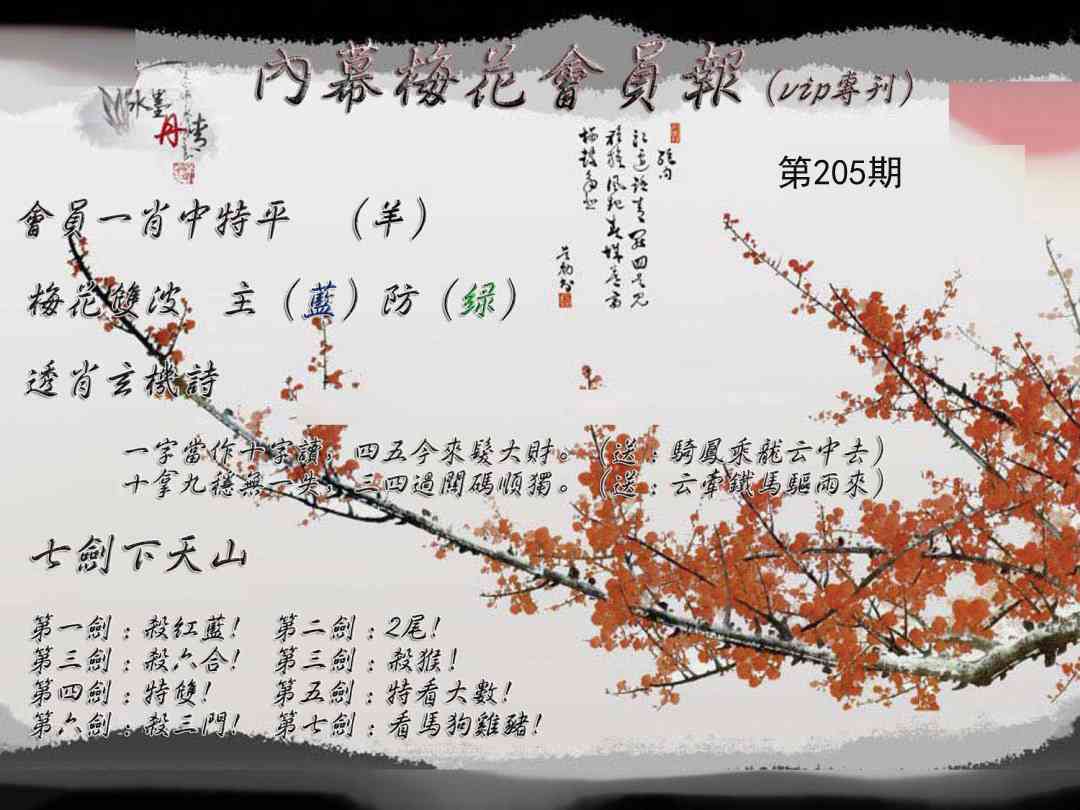 內幕梅花會員報(vip專刊)
水墨
丹青
第205期
會員一肖中特平 (羊)
梅花雙波 主(藍)防(绿)
透肖玄機詩
一字當作十字讀，四五今來髮大財。(送：騎鳳乘龍云中去)
十拿九穩無一失，三四過閘碼順獨。(送：云牽鐵馬驅雨來)
七劍下天山
第一劍：殺紅藍! 第二劍：2尾!
第三劍：殺六合! 第三劍：殺猴!
第四劍：特雙! 第五劍：特看大數!
第六劍：殺三門! 第七劍：看馬狗雞豬!